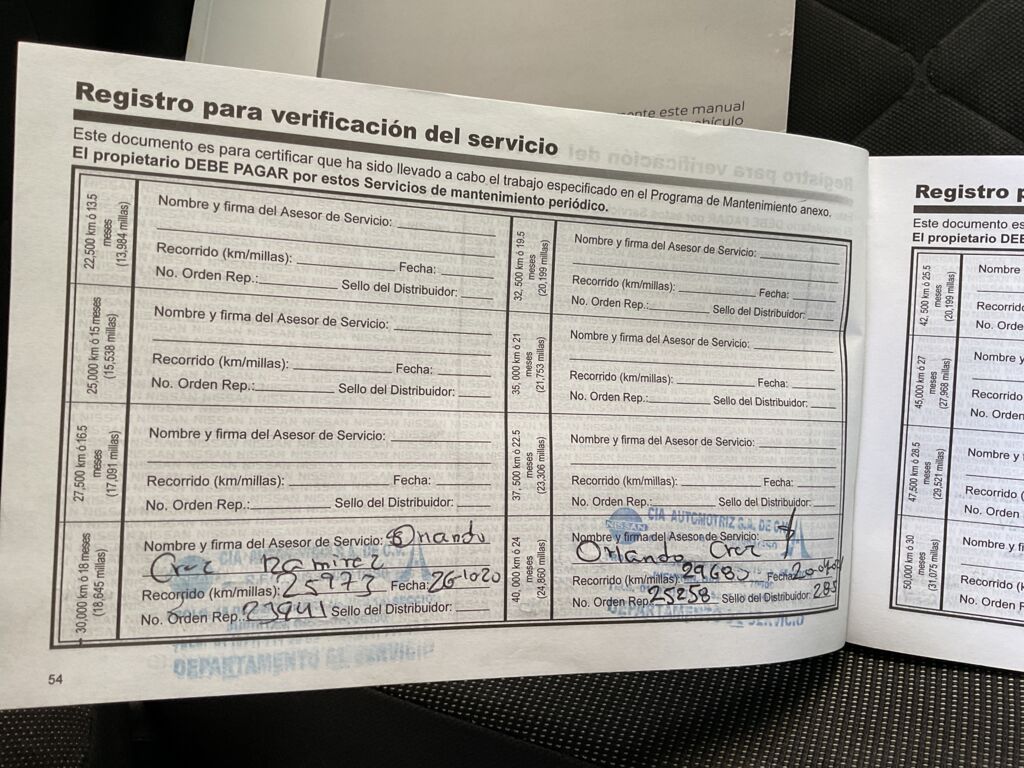 nte este manual
vehículo
Registro para verificación del servicio
Este documento es para certificar que ha sido llevado a cabo el trabajo especificado en el Programa de Mantenimiento anexo.
El propietario DEBE PAGAR por estos Servicios de mantenimiento periódico.
22,500 km ó 13.5
meses
(13,984 millas)
Nombre y firma del Asesor de Servicio:
Recorrido (km/millas): Fecha:
No. Orden Rep.: Sello del Distribuidor:
25,000 km ó 15 meses
(15,538 millas)
Nombre y firma del Asesor de Servicio:
Recorrido (km/millas): Fecha:
No. Orden Rep.: Sello del Distribuidor:
27,500 km ó 16.5
meses
(17,091 millas)
Nombre y firma del Asesor de Servicio:
Recorrido (km/millas): Fecha:
No. Orden Rep.: Sello del Distribuidor:
30,000 km ó 18 meses
(18,645 millas)
Nombre y firma del Asesor de Servicio: Orlando
Cruz Ramirez
Recorrido (km/millas): 25973 Fecha: 26-10-20
No. Orden Rep.: 23941 Sello del Distribuidor:
DEPARTAMENTO DE SERVICIO
32,500 km ó 19.5
meses
(20,199 millas)
Nombre y firma del Asesor de Servicio:
Recorrido (km/millas): Fecha:
No. Orden Rep.: Sello del Distribuidor:
35,000 km ó 21
meses
(21,753 millas)
Nombre y firma del Asesor de Servicio:
Recorrido (km/millas): Fecha:
No. Orden Rep.: Sello del Distribuidor:
37,500 km ó 22.5
meses
(23,306 millas)
Nombre y firma del Asesor de Servicio:
Recorrido (km/millas): Fecha:
No. Orden Rep.: Sello del Distribuidor:
NISSAN CIA AUTOMOTRIZ S.A. DE C.V.
40,000 km ó 24
meses
(24,860 millas)
Nombre y firma del Asesor de Servicio:
Orlando Cruz
Recorrido (km/millas): 29680 Fecha:
No. Orden Rep.: 25258 Sello del Distribuidor:
DEPARTAMENTO DE SERVICIO
54
Registro p
Este documento es
El propietario DEB
42,500 km ó 25.5
meses
(20,199 millas)
Nombre
Recorrido
No. Orde
45,000 km ó 27
meses
(27,968 millas)
Nombre y
Recorrido
No. Orden
47,500 km ó 28.5
meses
(29,521 millas)
Nombre y f
Recorrido (
No. Orden
50,000 km ó 30
meses
(31,075 millas)
Nombre y fi
Recorrido (k
No. Orden R